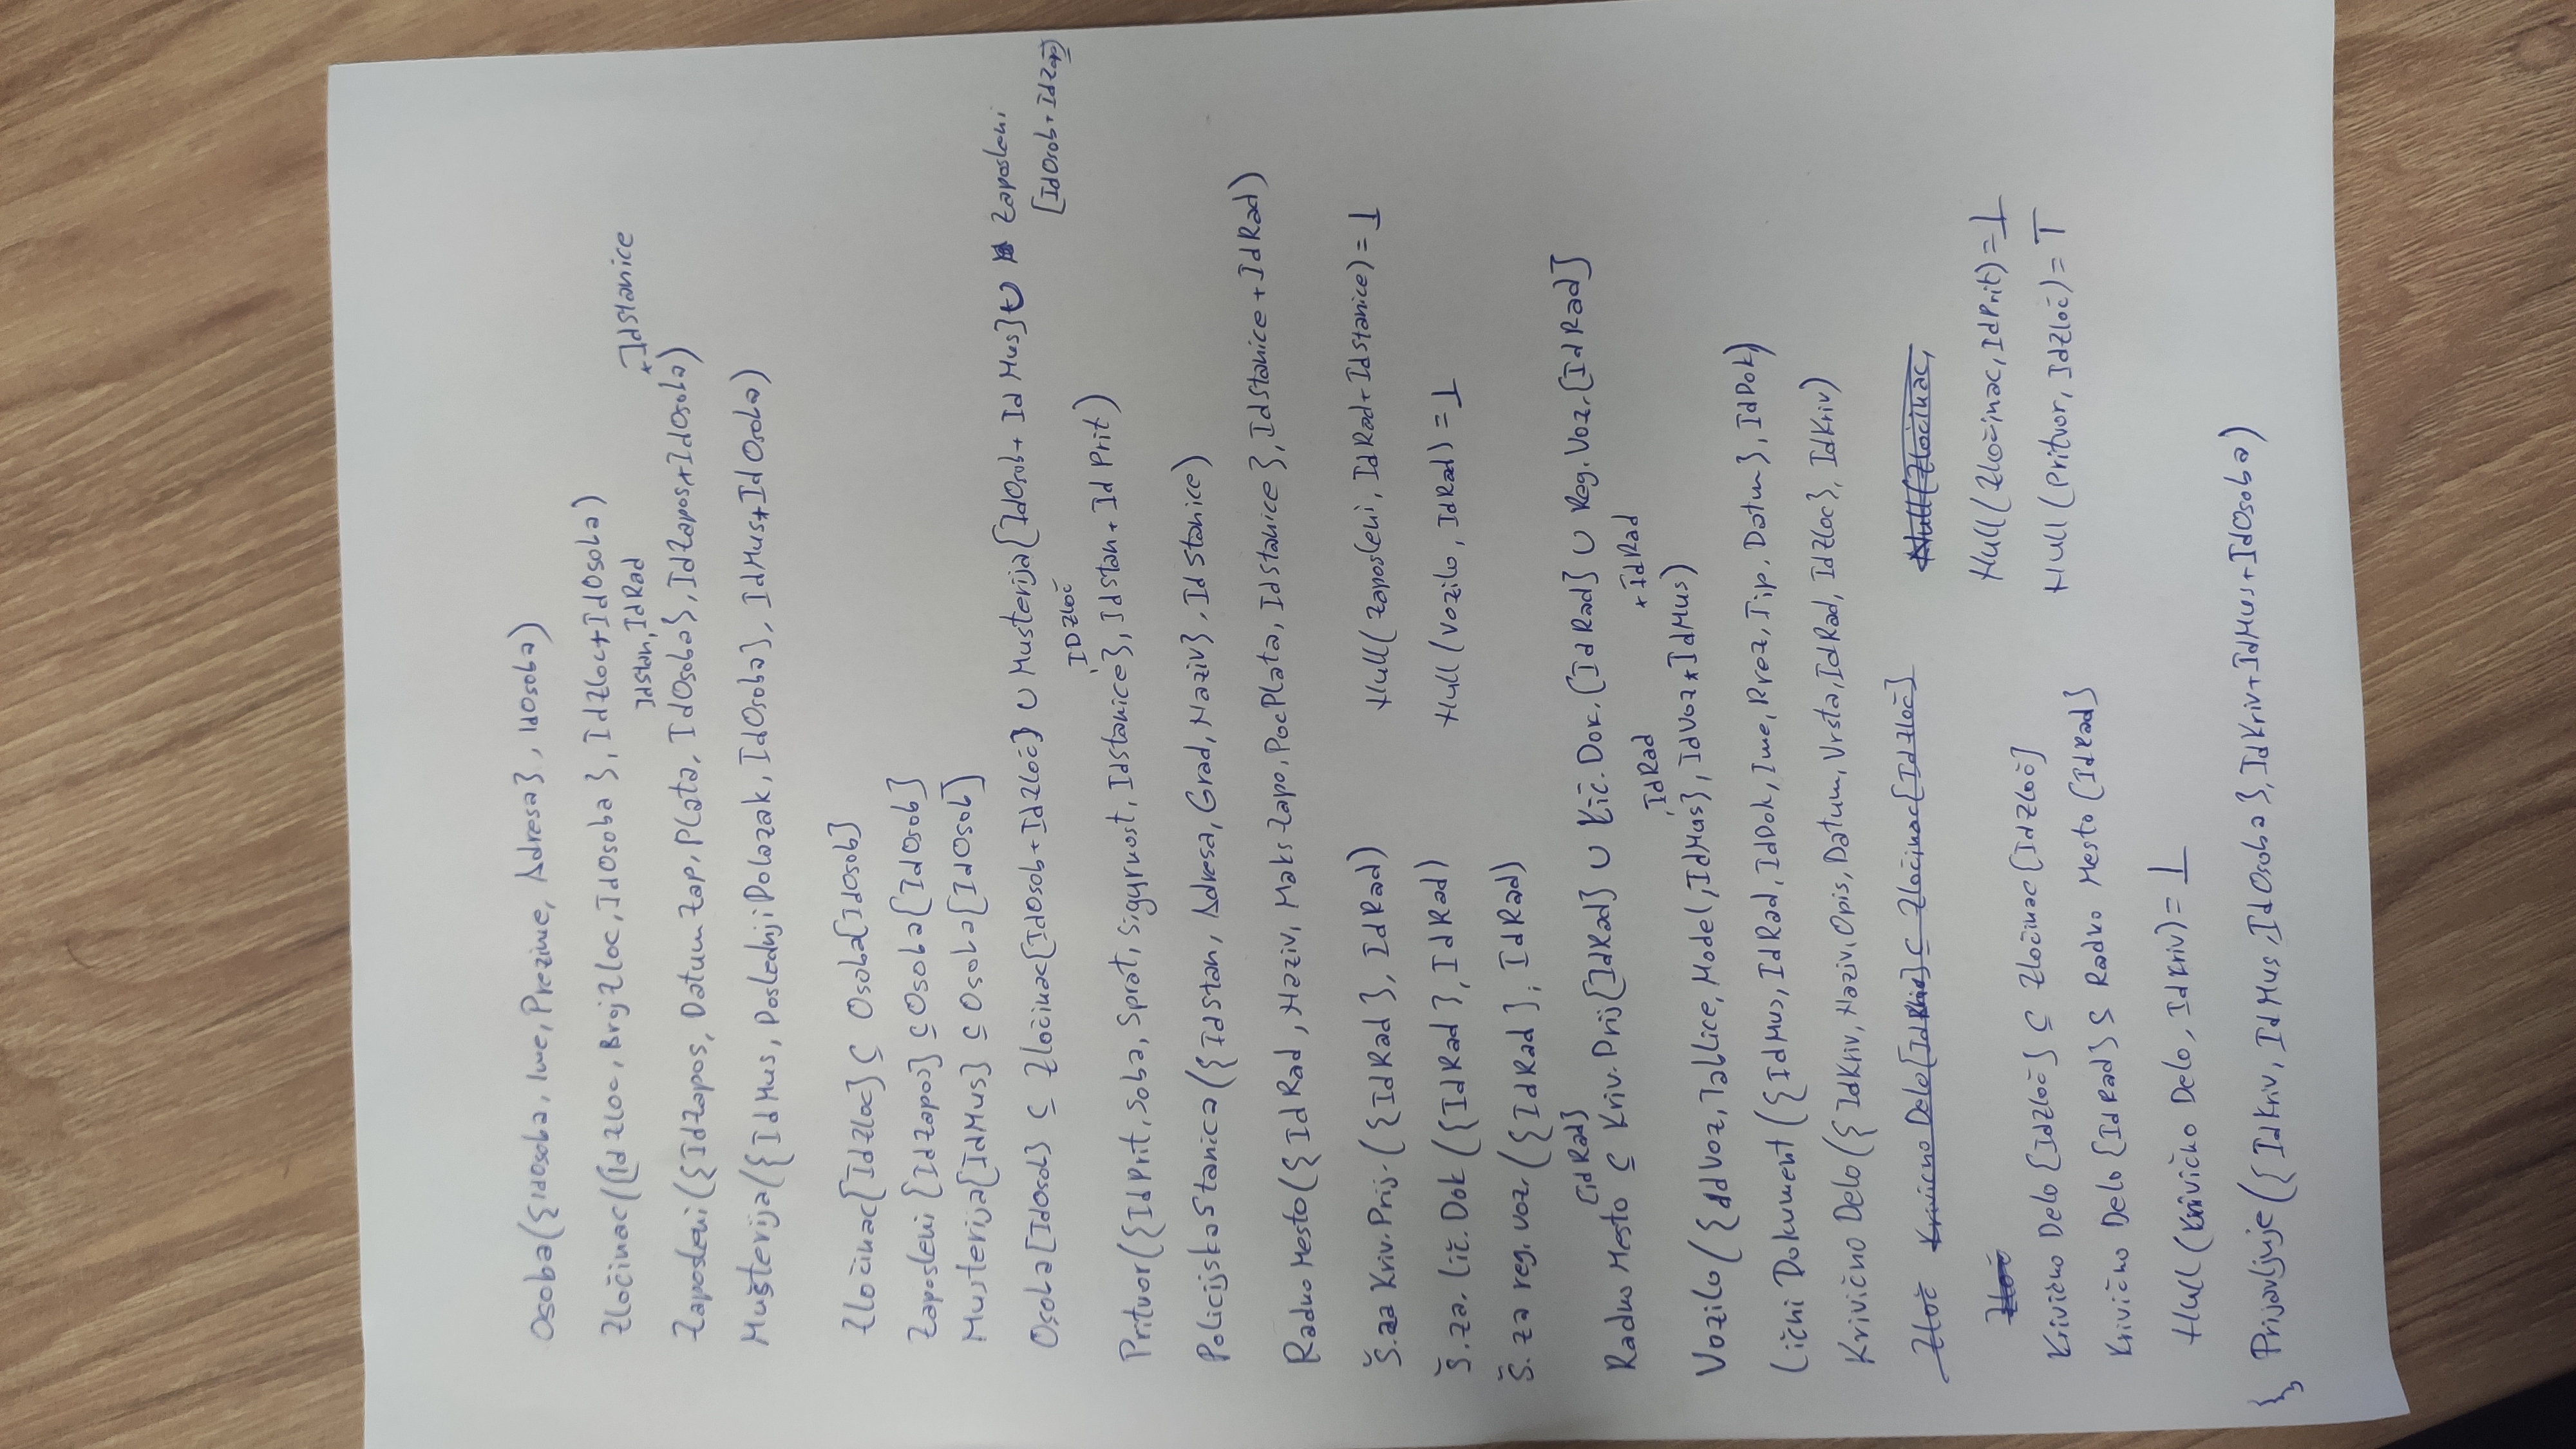 Osoba({IdOsoba, Ime, Prezime, Adresa}, IdOsoba)
Zločinac({IdZloc, BrojZloc, IdOsoba}, IdZloc+IdOsoba)
IdStan, IdRad +IdStanice
Zaposleni({IdZapos, DatumZap, Plata, IdOsoba}, IdZapos+IdOsoba)
Mušterija({IdMus, PoslednjiDolazak, IdOsoba}, IdMus+IdOsoba)
Zločinac[IdZloc] ⊆ Osoba[IdOsob]
Zaposleni[IdZapos] ⊆ Osoba[IdOsob]
Musterija[IdMus] ⊆ Osoba[IdOsob]
Osoba[IdOsob] ⊆ Zločinac[IdOsob+IdZloč] ∪ Musterija[IdOsob+IdMus] ∪ Zaposleni
[IdOsob+IdZap]
, IDZloč
Pritvor({IdPrit, Soba, Sprat, Sigurnost, IdStanice}, IdStan+IdPrit)
PolicijskaStanica({IdStan, Adresa, Grad, Naziv}, IdStanice)
Radno Mesto({IdRad, Naziv, MaksZapo, PocPlata, IdStanice}, IdStanice+IdRad)
Š.za Kriv.Prij.({IdRad}, IdRad) Null(Zaposleni, IdRad+IdStanice)=⊥
Š.za. Lič. Dok({IdRad}, IdRad) Null(Vozilo, IdRad)=⊥
Š. za reg. voz.({IdRad}, IdRad)
[idRad]
Radno Mesto ⊆ Kriv.Prij[IdRad] ∪ Lič.Dok.[IdRad] ∪ Reg.Voz.[IdRad]
, IdRad +IdRad
Vozilo({IdVoz, Tablice, Model, IdMus}, IdVoz+IdMus)
Lični Dokument({IdMus, IdRad, IdDok, Ime, Prez, Tip, Datum}, IdDok)
Krivično Delo({IdKriv, Naziv, Opis, Datum, Vrsta, IdRad, IdZloc}, IdKriv)
Zloč Krivicno Delo[IdKriv] ⊆ Zločinac[IdZloč] Null(Zločinac,
Zloč
Null(Zločinac, IdPrit)=⊥
Krivično Delo[IdZloč] ⊆ Zločinac[IdZloč]
Null(Pritvor, IdZloč)=T
Krivično Delo[IdRad] ⊆ Radno Mesto[IdRad]
Null(Krivično Delo, IdKriv)=⊥
} Prijavljuje({IdKriv, IdMus, IdOsoba}, IdKriv+IdMus+IdOsoba)